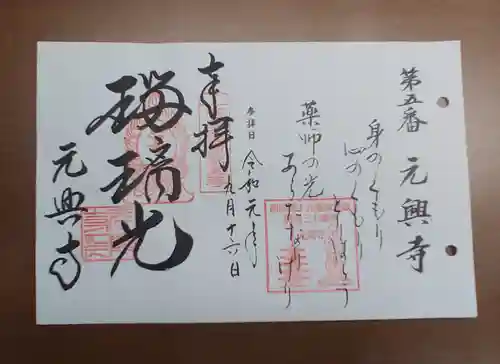 第五番 元興寺
身のくもり
心のくもり
とりはらう
薬師の光
あらたなりけり
参拝日 令和元年
九月十六日
奉拝
瑠璃光
元興寺